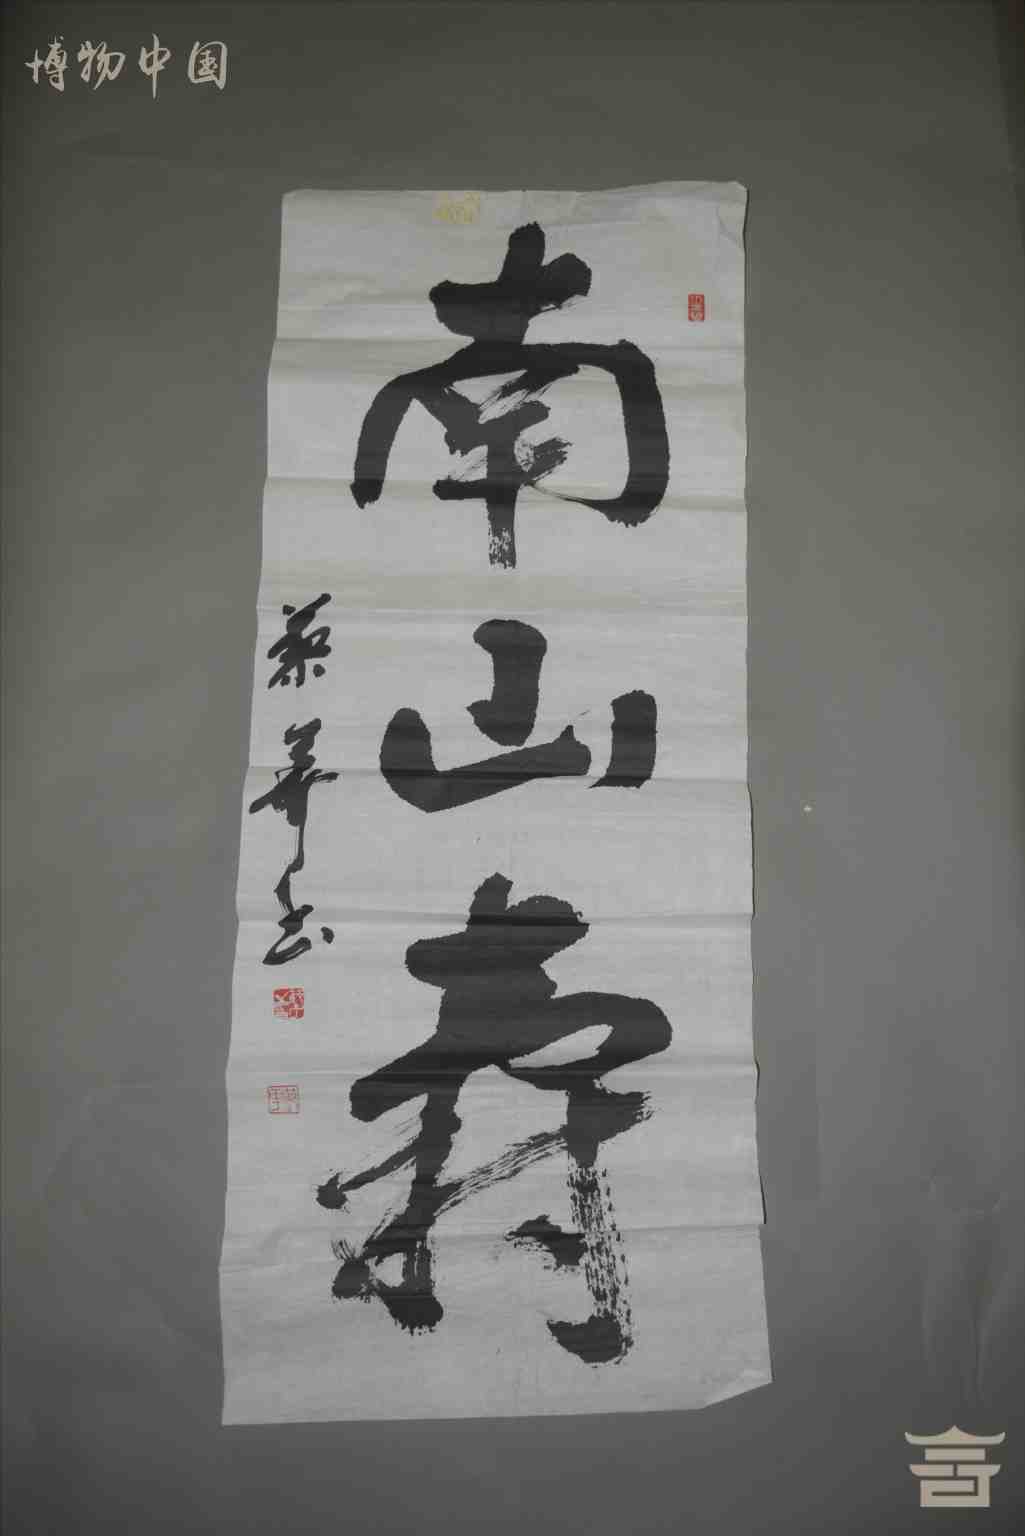 博物中国
南山寿
蔡华书